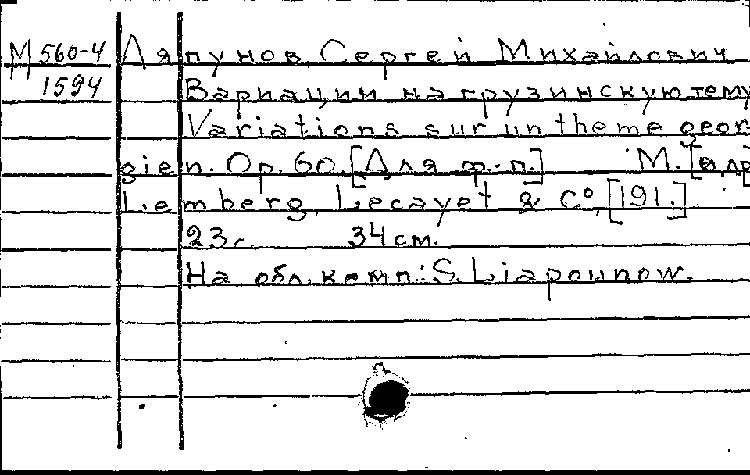 М 560-4 Ляпунов, Сергей Михайлович
1594 Вариации на грузинскую тему
Variations sur un theme geor
gien. Op. 60. [Для ф.-п.] М.
Lemberg, Lecayet & Co, [191.]
23 с. 34 см.
На обл. комп.: S. Liapounow.